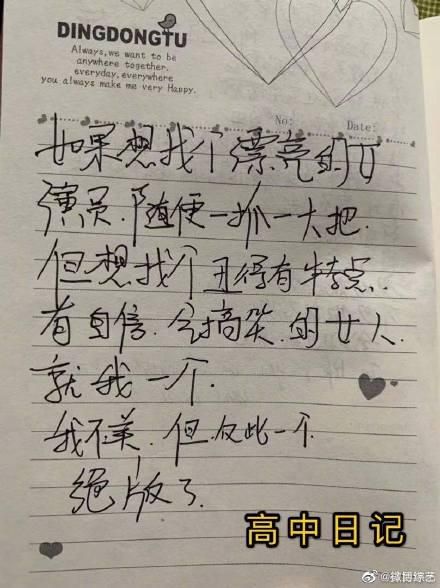 DINGDONGTU
Always,we want to be
anywhere together,
everyday,everywhere
you always make me very Happy.
No: Date:
如果想找个漂亮的女
演员.随便一抓一大把.
但想找个丑得有特点.
有自信.会搞笑.的女人.
就我一个.
我不美.但.仅此一个.
绝版了.
高中日记
@微博综艺